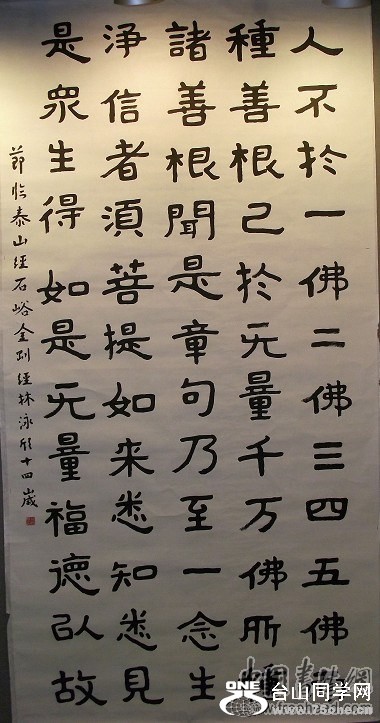 人不於一佛二佛三四五佛而
種善根已於无量千万佛所種
諸善根聞是章句乃至一念生
浄信者須菩提如来悉知悉見
是衆生得如是无量福德以故
莭临泰山經石峪金剛經林泳欣十四歲
ONE 台山同学网